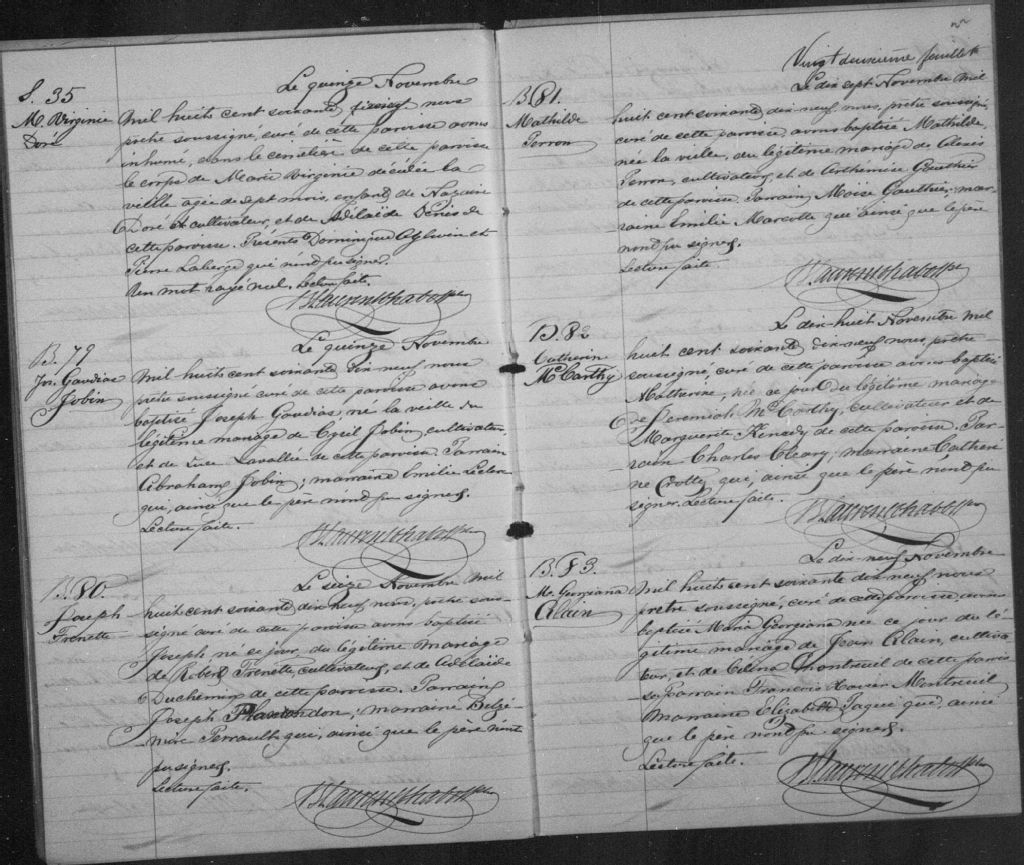 S. 35
M. Virginie
Doré
Le quinze Novembre
mil huit cent soixante nous
prêtre soussigné, curé de cette paroisse avons
inhumé, dans le cimetière de cette paroisse
le corps de Marie Virginie décédée la
veille agée de sept mois, enfant de Nazaire
Doré cultivateur, et de Adélaïde Denis de
cette paroisse. Présents Dominique et
Pierre Laberge qui n'ont pu signer.
Un mot rayé nul. Lecture faite.
B. 79
Jos. Gaudias
Jobin
Le quinze Novembre
mil huit cent soixante dix neuf nous
prêtre soussigné curé de cette paroisse avons
baptisé Joseph Gaudias, né la veille du
légitime mariage de Cyril Jobin cultivateur,
et de Luce Lavallée de cette paroisse Parrain
Abraham Jobin; marraine Emilie Leclerc
qui, ainsi que le père n'ont pu signer.
Lecture faite.
B. 80.
Joseph
Trenette
Le seize Novembre mil
huit cent soixante dix neuf nous, prêtre sous-
signé curé de cette paroisse avons baptisé
Joseph né ce jour, du légitime mariage
de Robert Trenette, cultivateur, et de Adélaïde
Duchemin de cette paroisse. Parrain
Joseph Plamondon; marraine Delzé-
mire Perrault qui, ainsi que le père n'ont
pu signer.
Lecture faite.
Vingt deuxième feuillet
B. 81.
Mathilde
Perron
Le dix sept Novembre mil
huit cent soixante dix neuf, nous, prêtre soussigné,
curé de cette paroisse, avons baptisé Mathilde,
née la veille, du légitime mariage de Alexis
Perron, cultivateur, et de Arthémise Gauthier
de cette paroisse. Parrain Moïse Gauthier, mar-
raine Emilie Marcotte qui ainsi que le père
n'ont pu signer.
Lecture faite.
B. 82
Catherine
McCarthy
Le dix-huit Novembre mil
huit cent soixante dix-neuf nous, prêtre
soussigné, curé de cette paroisse avons baptisé
Catherine, née ce jour du légitime mariage
de Jeremiah McCarthy, cultivateur et de
Marguerite Kenedy de cette paroisse. Par-
rain Charles Cleary; marraine Catheri-
ne Crotty qui, ainsi que le père n'ont pu
signer. Lecture faite.
B. 83.
M. Georgiana
Alain
Le dix-neuf Novembre
mil huit cent soixante dix neuf, nous
prêtre soussigné, curé de cette paroisse avons
baptisé Maria Georgiana née ce jour du lé-
gitime mariage de Jean Alain, cultiva-
teur, et de Célina Montreuil de cette parois-
se, Parrain François Xavier Montreuil
Marraine Elizabeth Paquet qui, ainsi
que le père n'ont pu signer.
Lecture faite.